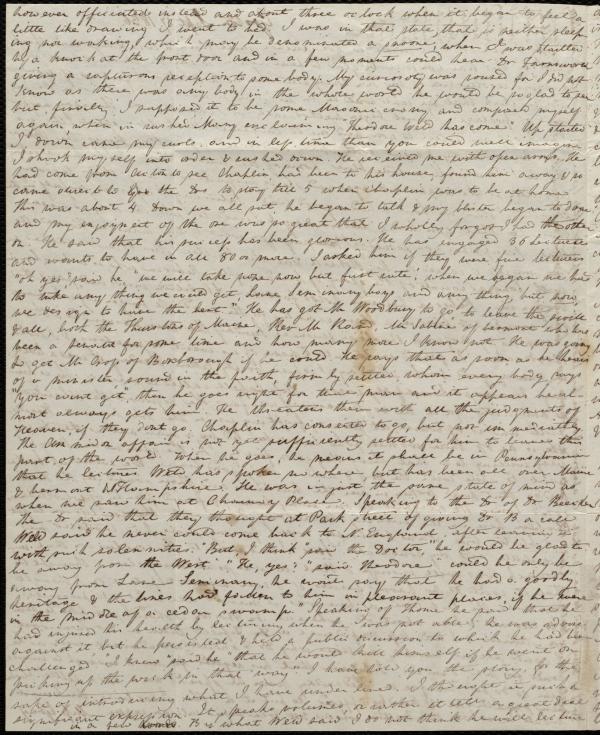 however officiated instead and about three o clock when it began to feel a
little like drawing I went to bed. I was in that state that is neither sleep
ing nor waking, which may be denominated a snooze, when I was startled
by a knock at the front door and in a few moments could hear Dr Farnsworth
giving a rapturous reception to some body. My curiosity was roused for I did not
know as there was any body in the whole world he would be so glad to see
but finally I supposed it to be some Masonic crony and composed myself
again, when in rushed Mary exclaiming Theodore Weld has come! Up started
I down came my curls, and in less time than you could well imagine
I shook myself into order & rushed down. He received me with open arms. He
had come from Acton to see Chaplin had been to his house, found him away & so
came direct to the Drs to stay till 5 when Chaplin was to be at home
this was about 4. Down we all sat, he began to talk & my blister began to draw
and my enjoyment of the one was so great that I wholly forgot I had the other
on. He said that his success has been glorious. He has engaged 36 lecturers
and wants to have in all 80 or more. I asked him if they were fine lecturers
"oh yes" said he "we will take none now but first rate; when we began we had
to take any thing we could get, lame, any body and any thing, but now
we design to have the best." He has got Mr Woodbury to go, to leave the
& all, both the Thurstons of Maine, Rev. Mr Rand, Mr Sabine of Vermont who has
been a for some time and how many more I know not. He was going
to get Mr Cross of Boxborough if he could. He says that as soon as he hears
of a minister sound in the faith, firmly settled whom every body says
"you cannot get," then he goes right for that man and it appears he al-
most always gets him. He threatens them with all the judgments of
Heaven, if they dont go. Chaplin has consented to go, but not immediately
the affair is not yet sufficiently settled for him to leave this
part of the world. When he goes, he means it shall be in Pennsylvania
that he lectures. Weld has spoken no where but has been all over Maine
& Vermont N Hampshire. He was in just the same state of mind as
when we saw him at Chauncy Place. Speaking to the Dr of Dr Beecher
the Dr said that they thought at Park street of giving Dr B a call
Weld said he never could come back to N. England, after leaving it
with such solemnities. "But, I think said the Doctor, "he would be glad to
be away from the West." "He, yes!" said Theodore "could he only be
away from Lane Seminary, he wont say that he had a goodly
heritage & the lines had fallen to him in pleasant places, if he were
in the middle of a cedar swamp." Speaking of Thome he said that he
had injured his health by lecturing when he was not able; he was advised
against it but he persisted & held a public discussion to which he had been
challenged "I knew" said he "that he would kill himself if he went on
picking up the week in that way." I have told you the story for the
sake of introducing what I have underlined. I thought it such a
significant expression. It speaks volumes, or rather it tells a great deal
in a few words. But what Weld said I do not think he will lecture